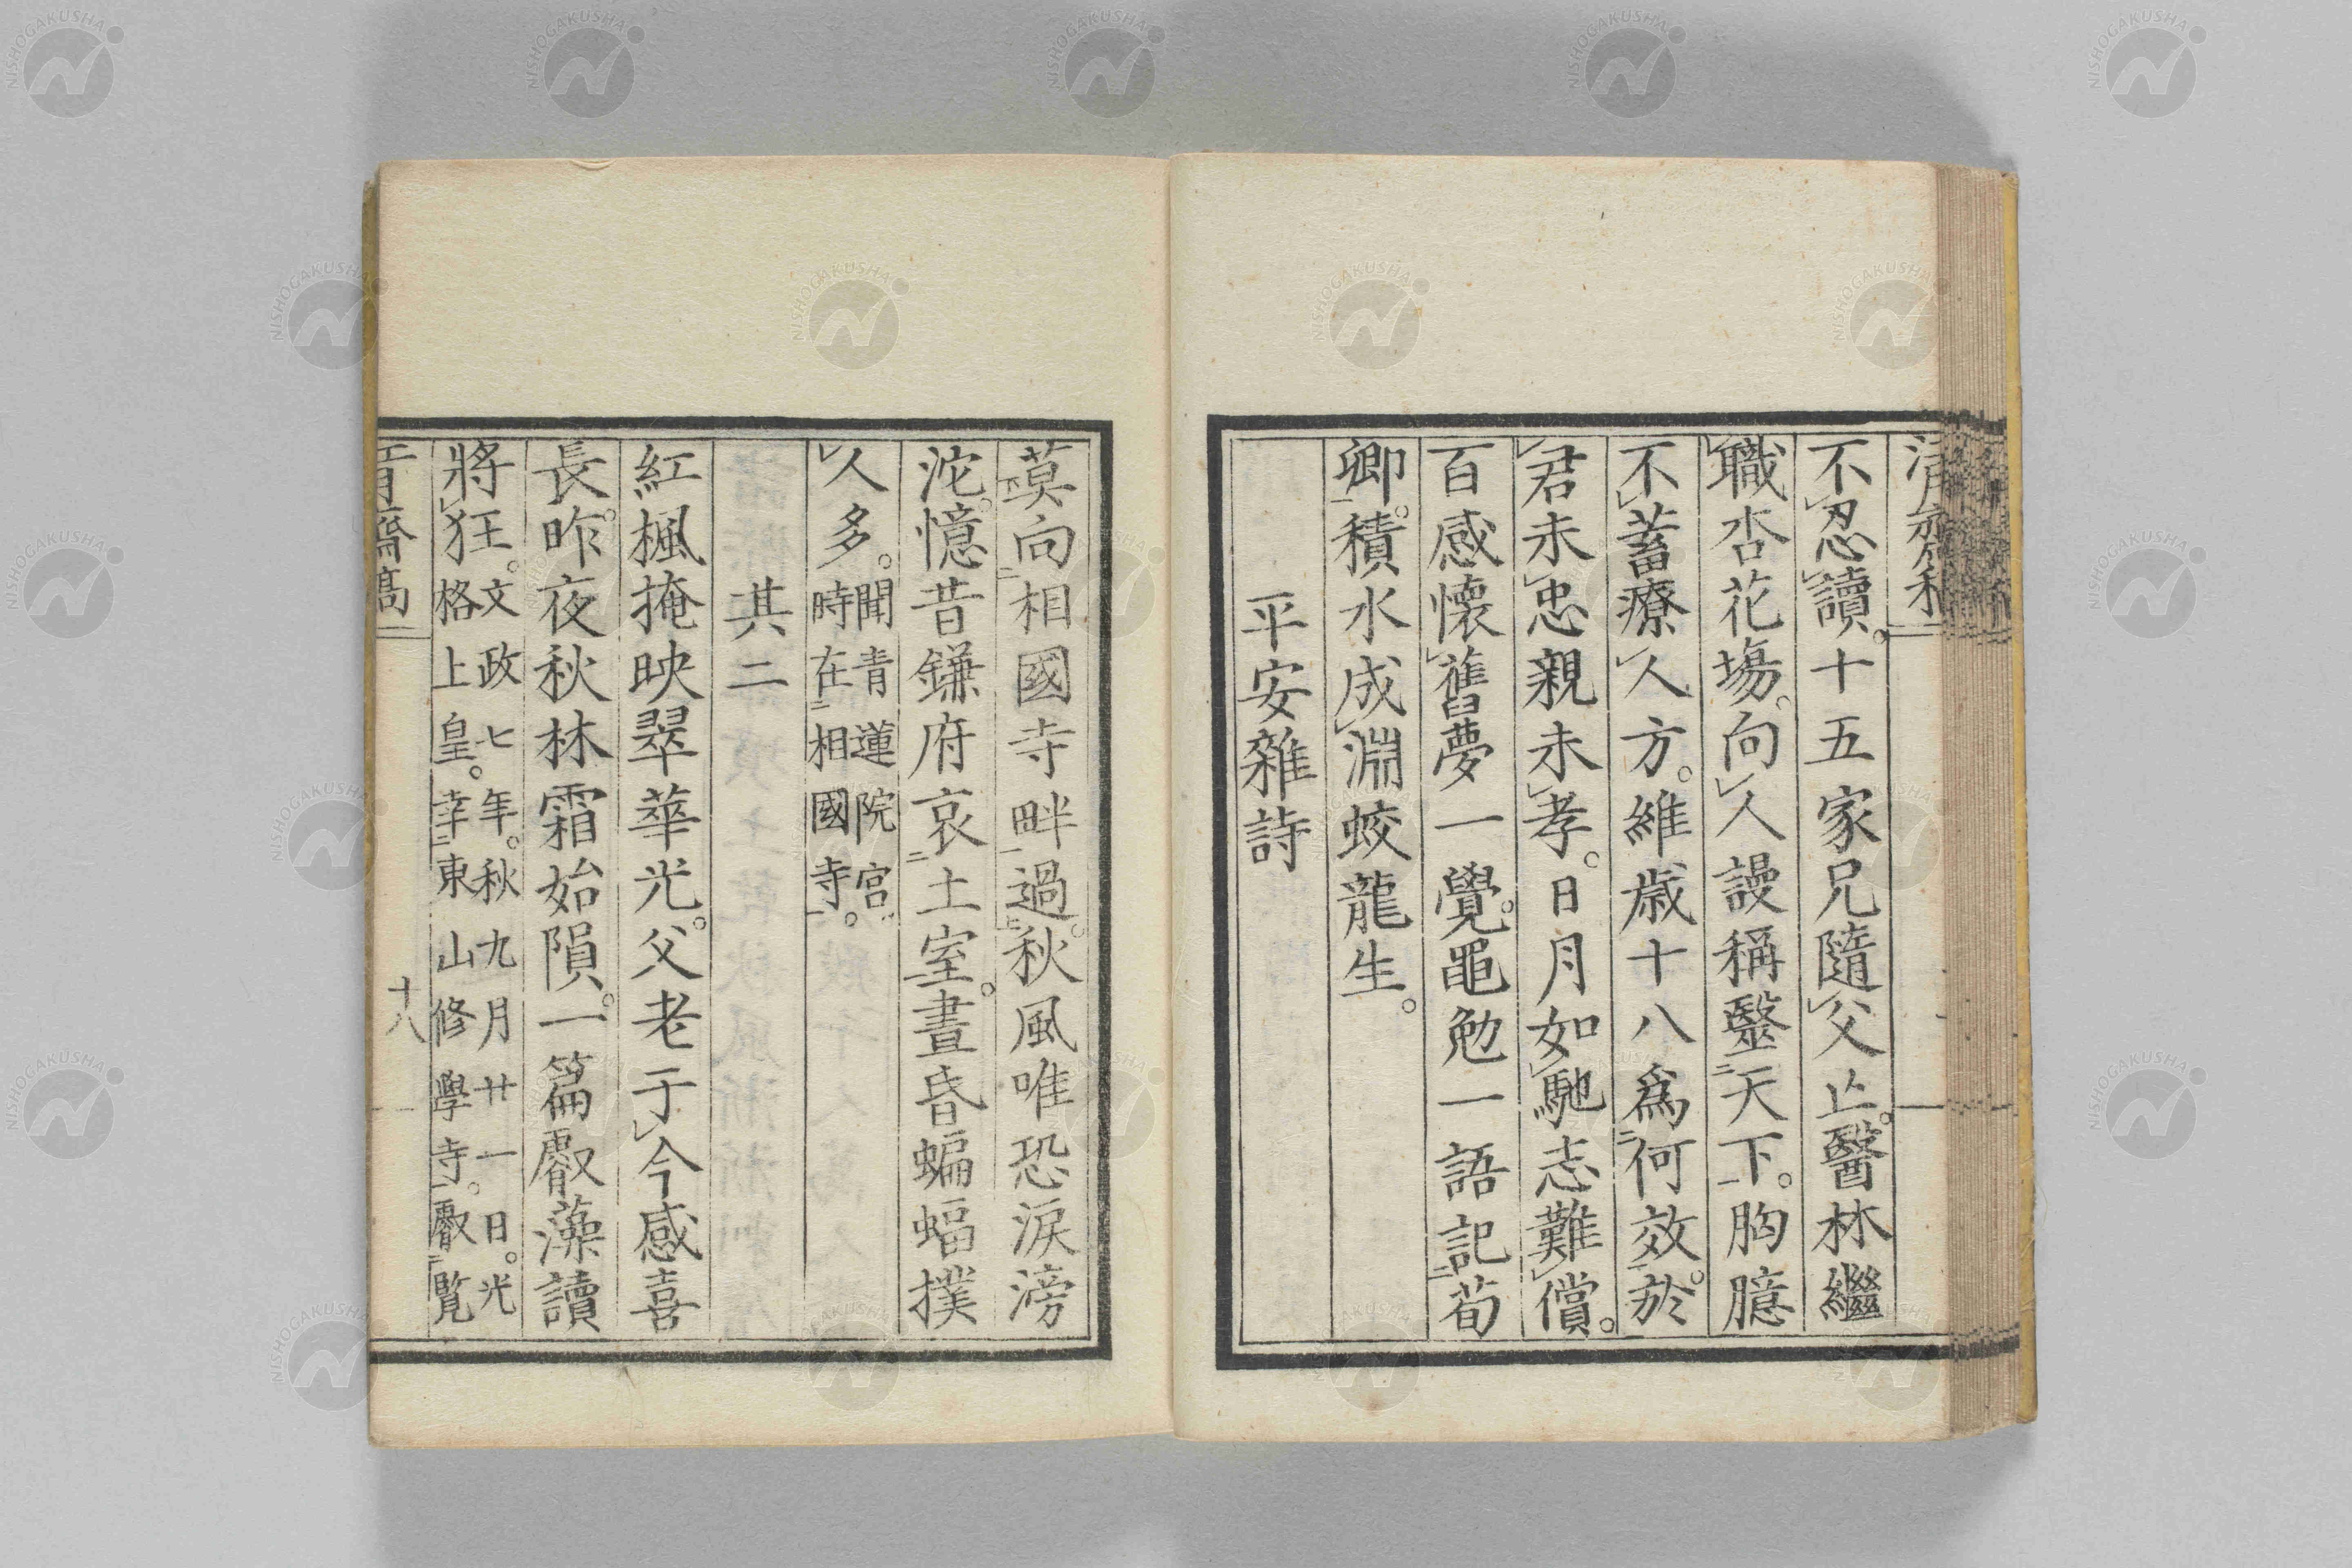 不忍讀。十五家兄隨父止。醫林繼
職杏花場。向人謾稱毉天下。胸臆
不蓄療人方。維歲十八爲何效。於
君未忠親未孝。日月如馳志難償。
百感懷舊夢一覺。黽勉一語記荀
卿。積水成淵蛟龍生。
平安雜詩
莫向相國寺畔過。秋風唯恐淚滂
沱。憶昔鎌府哀土室。晝昏蝙蝠撲
人多。聞青蓮院宮
時在相國寺。
其二
紅楓掩映翠華光。父老于今感喜
長。昨夜秋林霜始隕。一篇叡藻讀
將狂。文政七年。秋九月廿一日。光
格上皇。幸東山修學寺。叡覧
齋高
十八
NISHOGAKUSHA